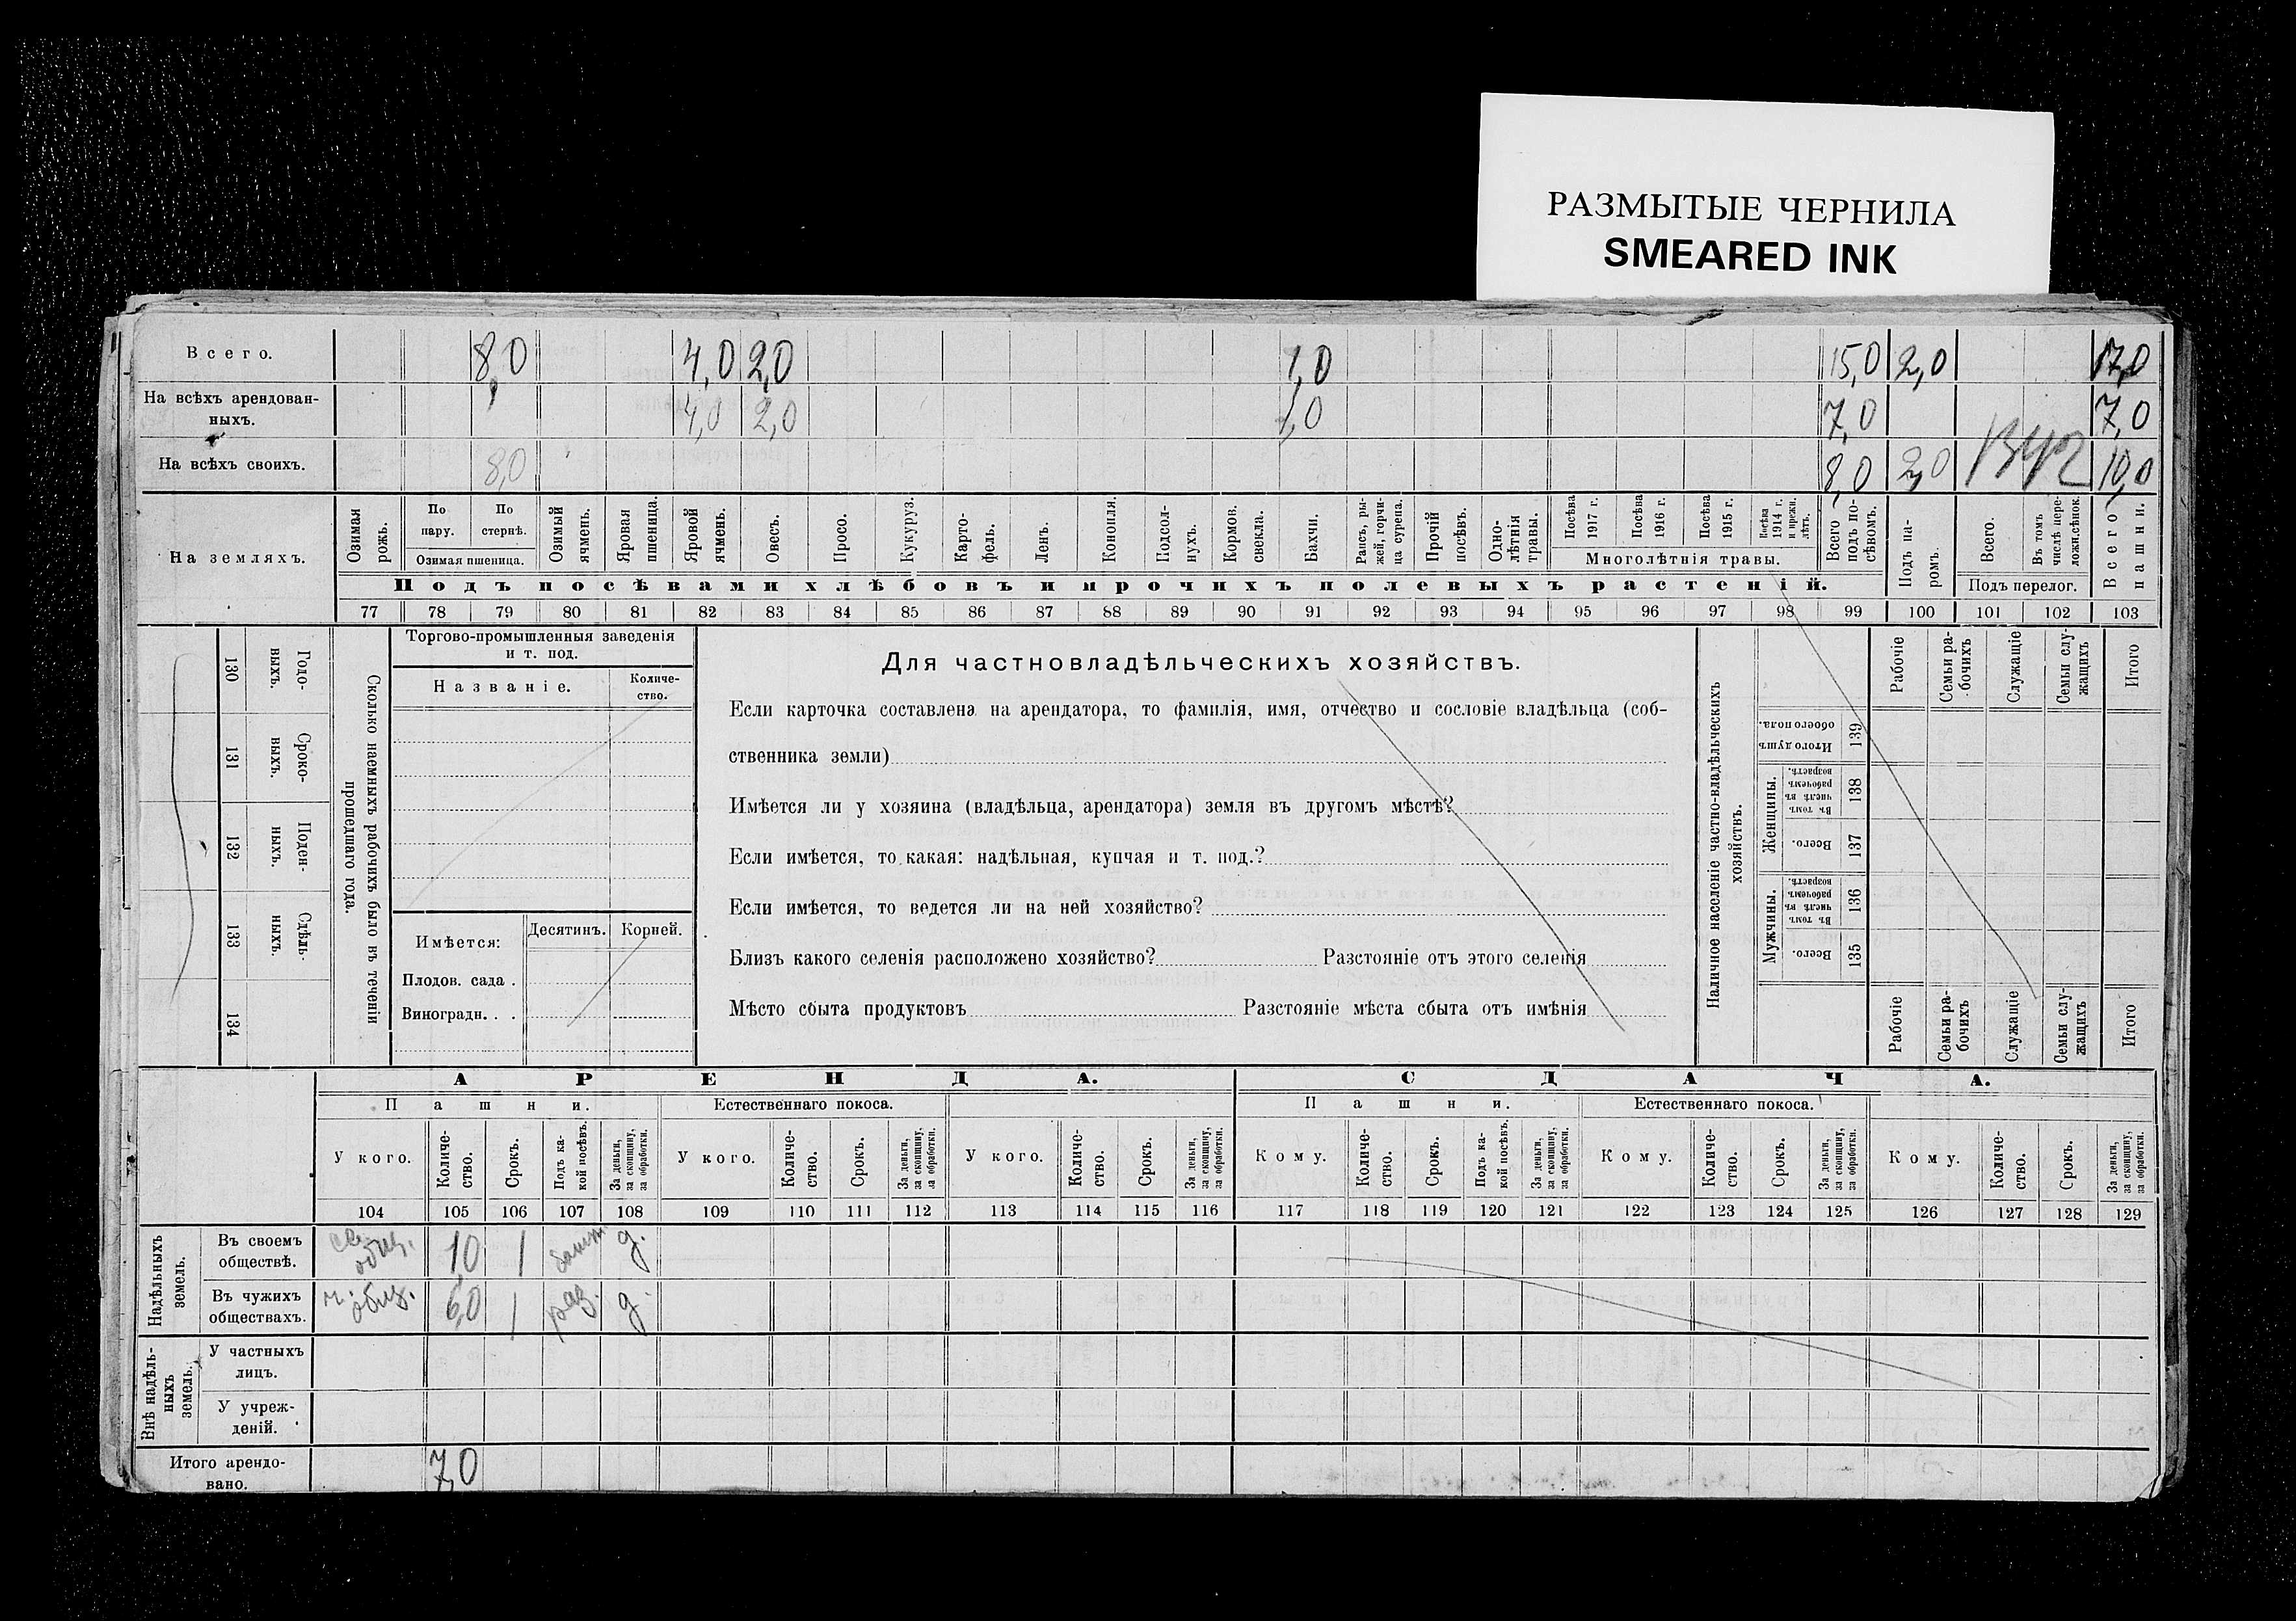 РАЗМЫТЫЕ ЧЕРНИЛА
SMEARED INK
Всего. 8,0 4,0 2,0 1,0 15,0 2,0 17,0
На всѣхъ арендован-
ныхъ. 4,0 2,0 1,0 7,0 7,0
На всѣхъ своихъ. 8,0 8,0 2,0 10,0
На земляхъ.
Озимая рожь.
По пару.
По стернѣ.
Озимая пшеница.
Озимый ячмень.
Яровая пшеница.
Яровой ячмень.
Овесъ.
Просо.
Кукуруз.
Карто-
фель.
Ленъ.
Конопля.
Подсол-
нухъ.
Кормов. свекла.
Бахчи.
Рапсъ, ры-
жей, горчи-
ца сурепа.
Прочій посѣвъ.
Одно-
лѣтнія травы.
Посѣва 1917 г.
Посѣва 1916 г.
Посѣва 1915 г.
Посѣва 1914 г. и прежн. лѣтъ.
Многолѣтнія травы.
Всего подъ по-
сѣвомъ.
Подъ па-
ромъ.
Всего.
Въ томъ числѣ пере-
ложн.сѣнок.
Подъ перелог.
Всего пашни.
Подъ посѣвами хлѣбовъ и прочихъ полевыхъ растеній.
77 78 79 80 81 82 83 84 85 86 87 88 89 90 91 92 93 94 95 96 97 98 99 100 101 102 103
130 Годо-
выхъ.
131 Сроко-
выхъ.
132 Поден-
ныхъ.
133 Сдѣль-
ныхъ.
134
Сколько наемныхъ рабочихъ было въ теченіи
прошедшаго года.
Торгово-промышленныя заведенія
и т. под.
Названіе.
Количе-
ство.
Имѣется:
Десятинъ.
Корней.
Плодов. сада .
Виноградн. . .
Для частновладѣльческихъ хозяйствъ.
Если карточка составлена на арендатора, то фамилія, имя, отчество и сословіе владѣльца (соб-
ственника земли)
Имѣется ли у хозяина (владѣльца, арендатора) земля въ другомъ мѣстѣ?
Если имѣется, то какая: надѣльная, купчая и т. под.?
Если имѣется, то ведется ли на ней хозяйство?
Близъ какого селенія расположено хозяйство? Разстояніе отъ этого селенія
Мѣсто сбыта продуктовъ Разстояніе мѣста сбыта отъ имѣнія
Наличное населеніе частно-владѣльческихъ
хозяйствъ.
Рабочіе
Семьи ра-
бочихъ
Служащіе
Семьи слу-
жащихъ
Итого
Итого душъ обоего пола. 139
Женщины.
Въ томъ числѣ въ рабочемъ возрастѣ. 138
Всего. 137
Мужчины.
Въ томъ числѣ въ рабочемъ возрастѣ. 136
Всего. 135
Рабочіе
Семьи ра-
бочихъ
Служащіе
Семьи слу-
жащихъ
Итого
АРЕНДА. СДАЧА.
Пашни. Естественнаго покоса. Пашни. Естественнаго покоса.
У кого.
Количе-
ство.
Срокъ.
Подъ ка-
кой посѣвъ.
За деньги,
за скопщину,
за обработки.
У кого.
Количе-
ство.
Срокъ.
За деньги,
за скопщину,
за обработки.
У кого.
Количе-
ство.
Срокъ.
За деньги,
за скопщину,
за обработки.
Кому.
Количе-
ство.
Срокъ.
Подъ ка-
кой посѣвъ.
За деньги,
за скопщину,
за обработки.
Кому.
Количе-
ство.
Срокъ.
За деньги,
за скопщину,
за обработки.
Кому.
Количе-
ство.
Срокъ.
За деньги,
за скопщину,
за обработки.
104 105 106 107 108 109 110 111 112 113 114 115 116 117 118 119 120 121 122 123 124 125 126 127 128 129
Надѣльныхъ
земель.
Въ своемъ
обществѣ. 1,0 1 д.
Въ чужихъ
обществахъ. ч. общ. 6,0 1 раз. д.
Внѣ надѣль-
ныхъ
земель.
У частныхъ
лицъ.
У учреж-
деній.
Итого арендо-
вано. 7,0